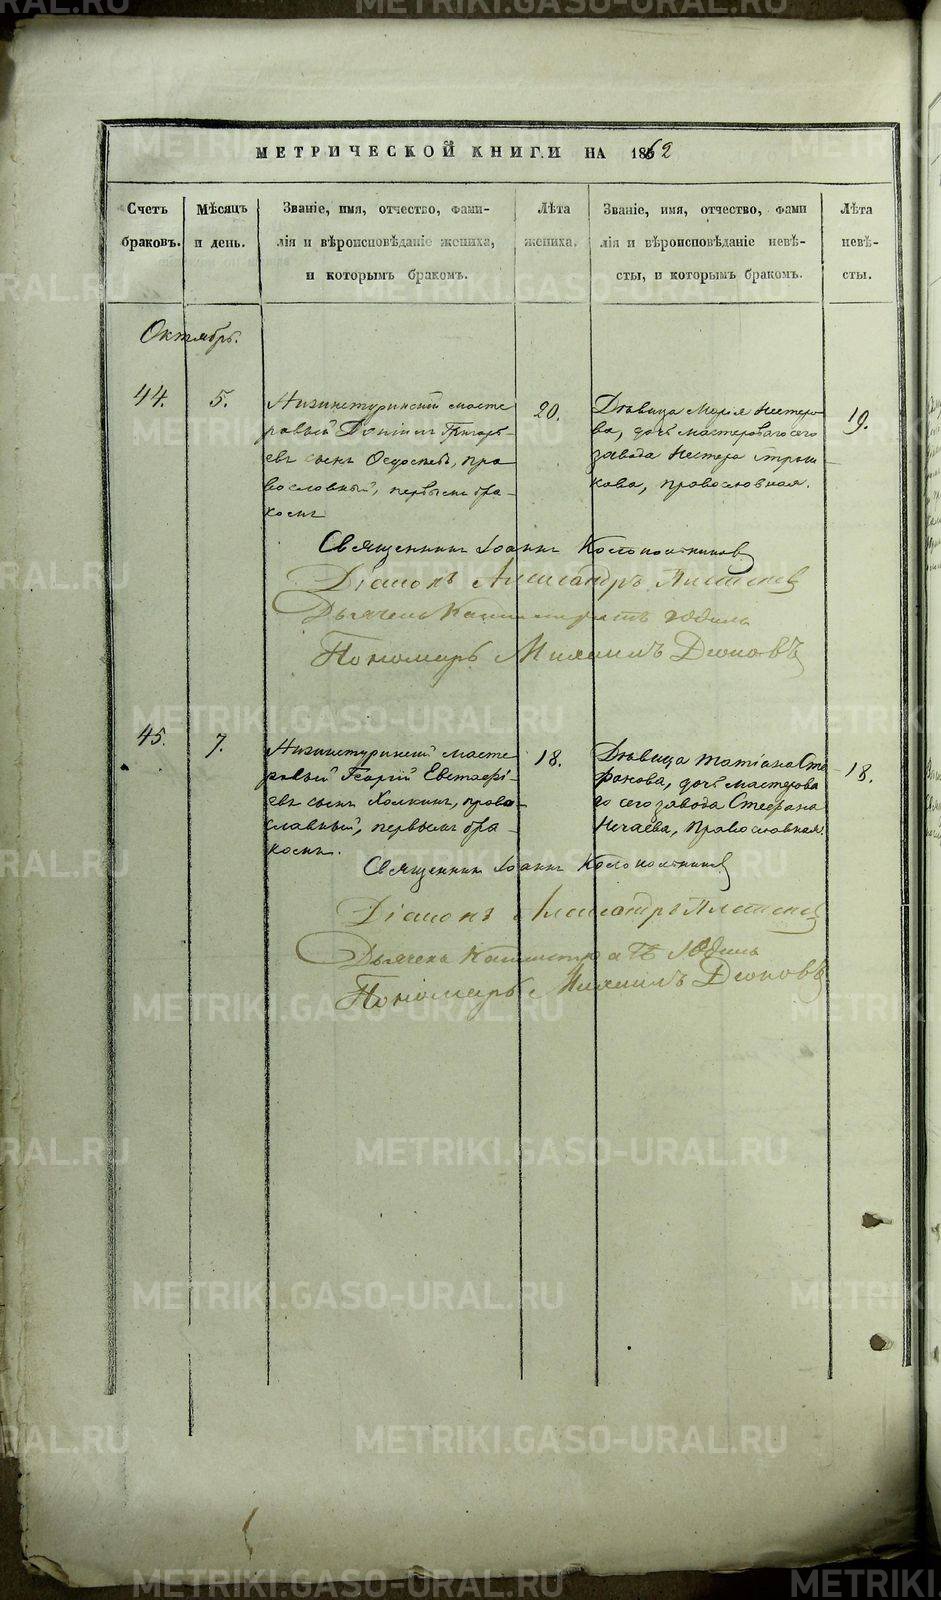 МЕТРИЧЕСКОЙ КНИГИ НА 1862
Счетъ
браковъ.
Мѣсяцъ
и день.
Званіе, имя, отчество, фами-
лія и вѣроисповѣданіе жениха,
и которымъ бракомъ.
Лѣта
жениха.
Званіе, имя, отчество, фами
лія и вѣроисповѣданіе невѣ-
сты, и которымъ бракомъ.
Лѣта
невѣ-
сты.
Октябрь.
44.
5.
Нижнетуринскій масте
ровый Григорь-
евъ сынъ пра
вославный, первымъ бра-
комъ
20.
Дѣвица Марія Нестеро-
ва, дочь мастероваго сего
завода Нестера
кова, православная.
19.
Священникъ Іоаннъ
Діаконъ Александръ
Дьячекъ
Пономарь Михаилъ
45.
7.
Нижнетуринскій масте
ровый Георгій Евстафі-
евъ сынъ Холкинъ, право-
славный, первымъ бра-
комъ.
18.
Дѣвица Татіана Сте
фанова, дочь мастерова
го сего завода Стефана
Нечаева, Православная.
18.
Священникъ Іоаннъ
Діаконъ Александръ
Дьячекъ
Пономарь Михаилъ
METRIKI.GASO-URAL.RU